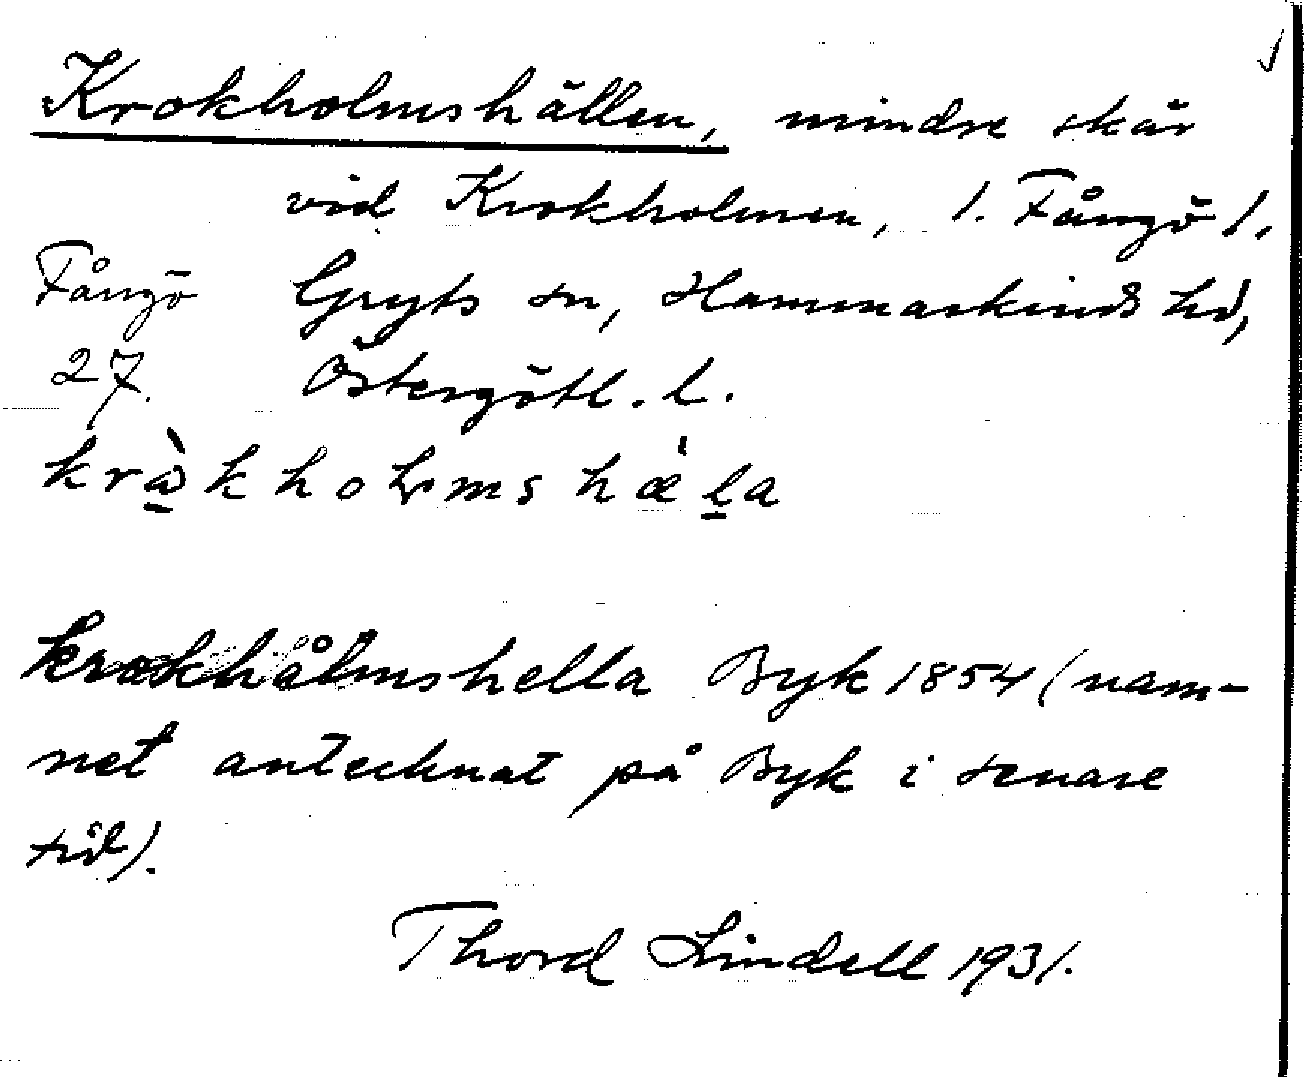 Krokholmshällen, mindre skär
vid Krokholmen, 1. Fångö 1.
Fångö Gryts sn, Hammarkinds hd,
27. Östergötl. l.
kràkholmshæ̀la
krokhålmshella Byk 1854 (nam-
net antecknat på Byk i senare
tid).
Thord Lindell 1931.